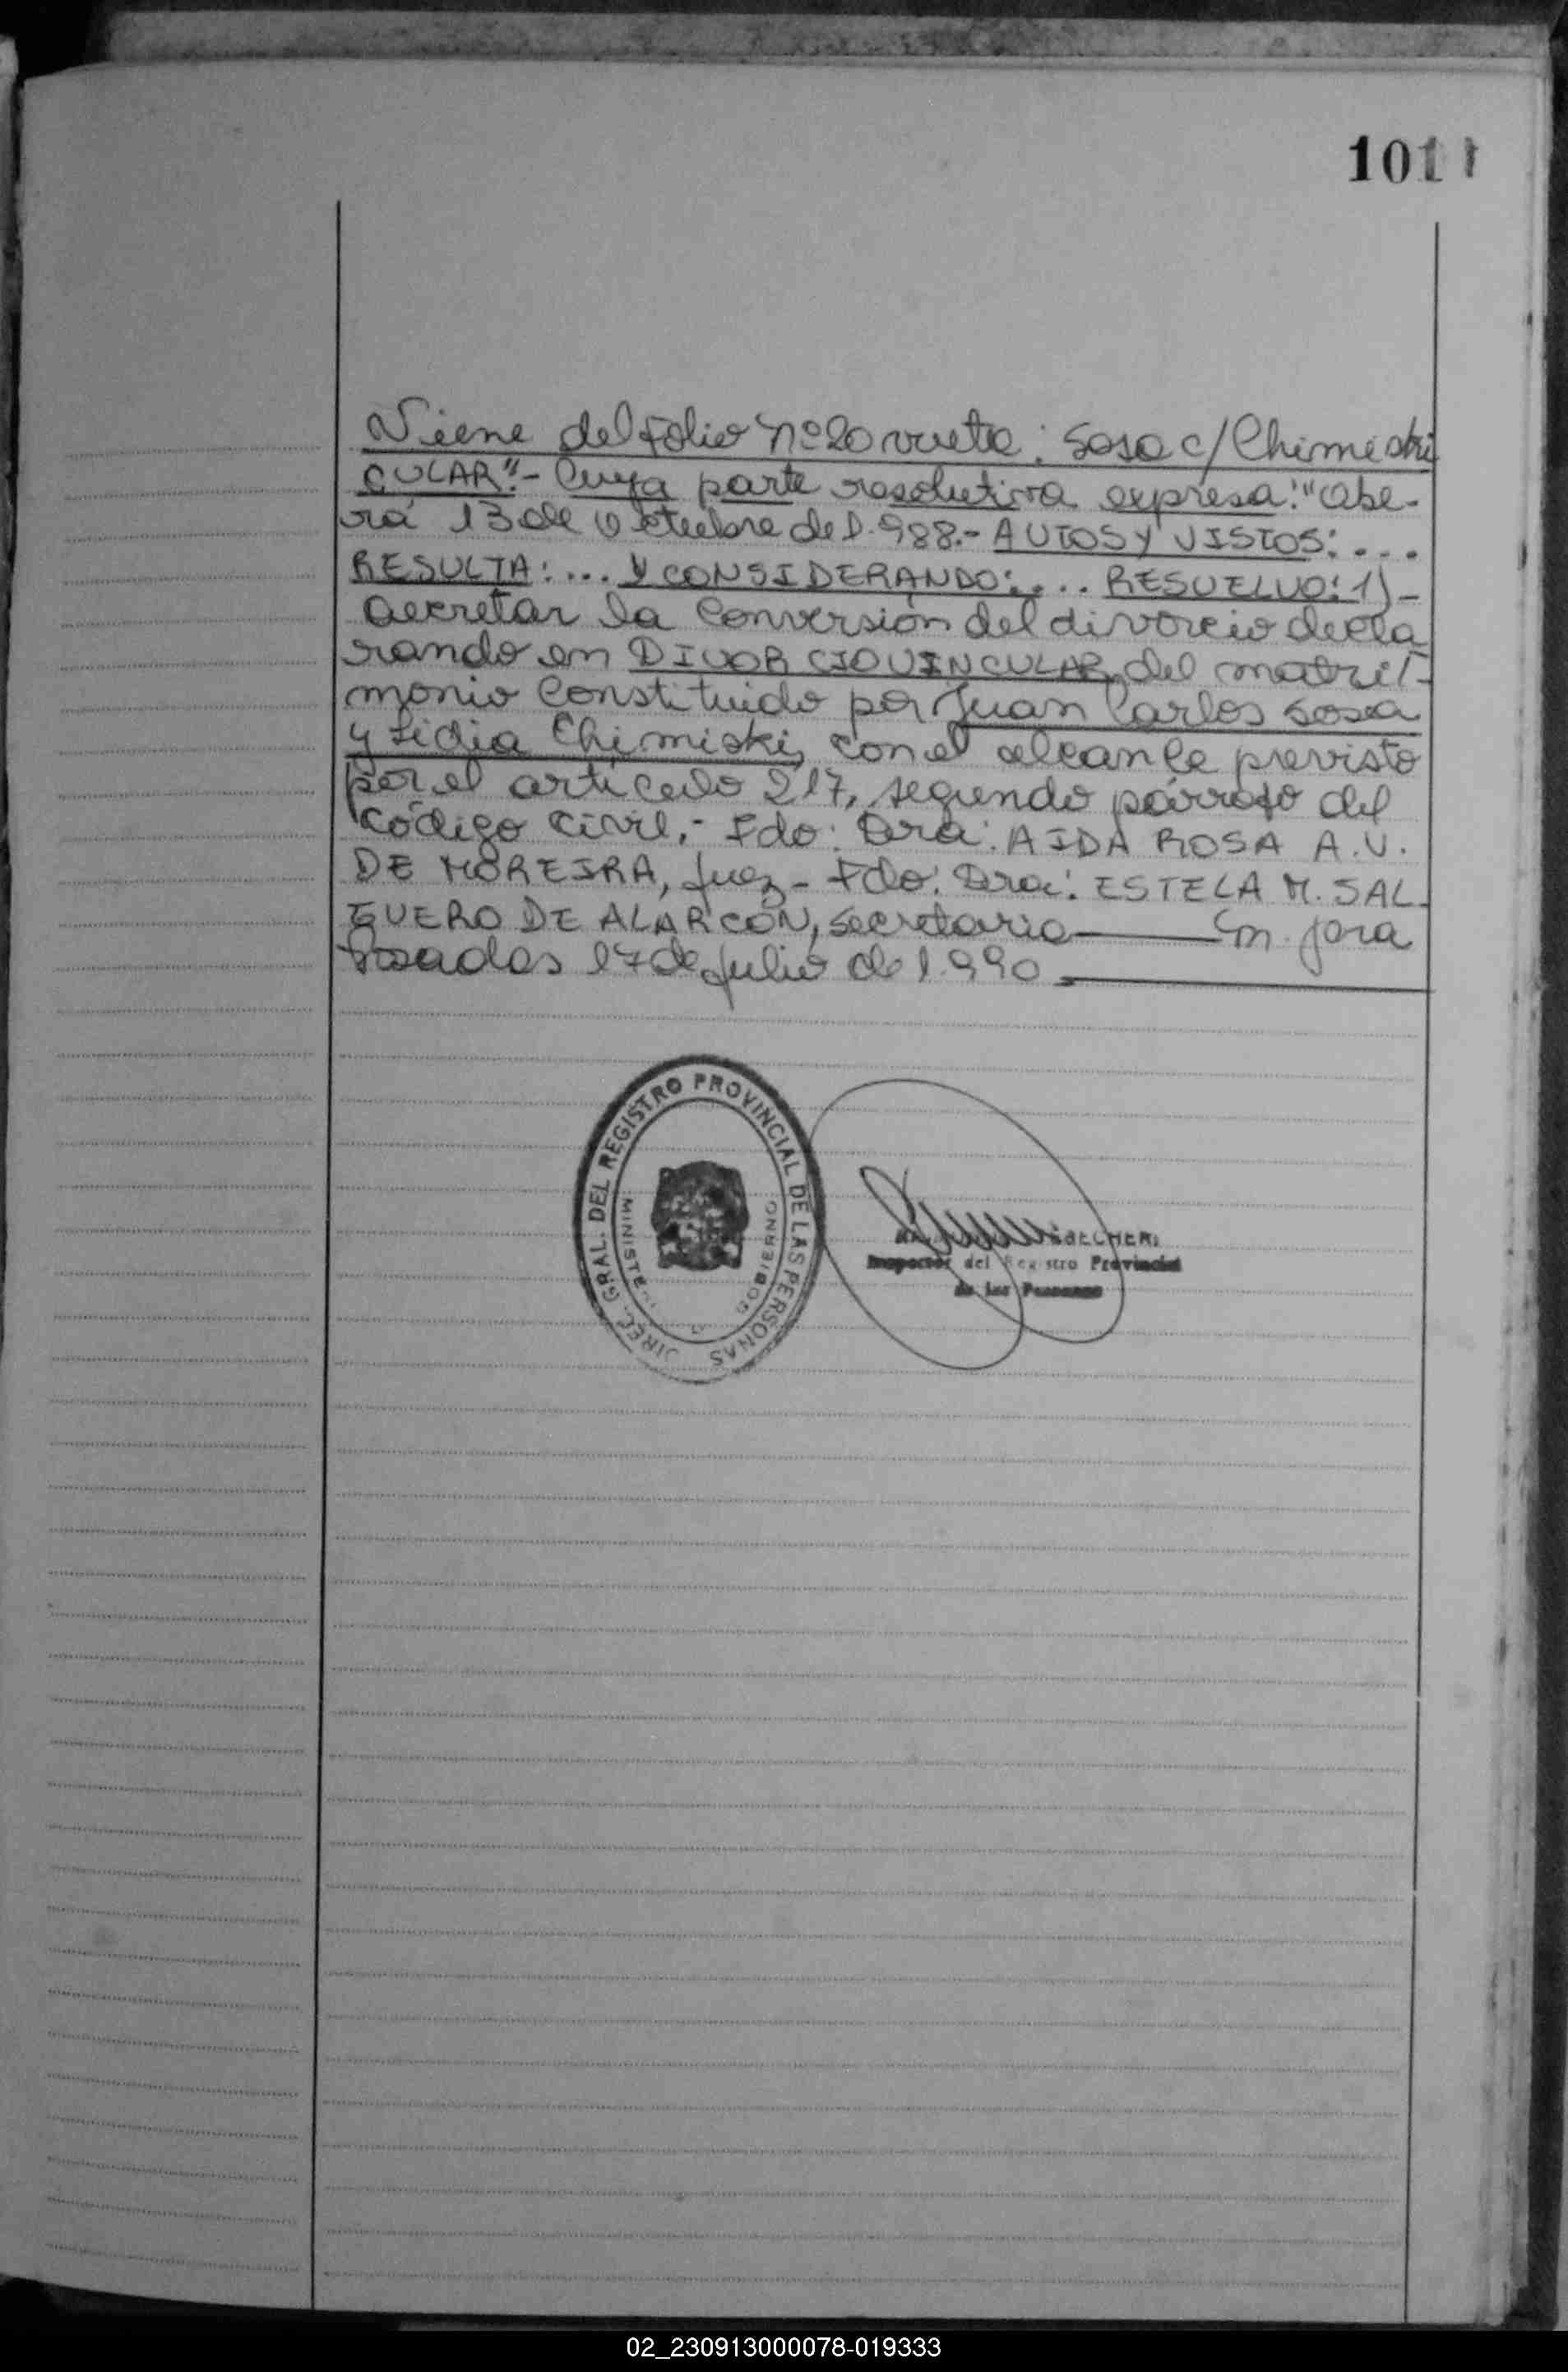 1011
Viene del folio Nº 20 vuelta: Sosa c/ Chimiski
CULAR".- Cuya parte resolutiva expresa: "Obe-
rá 13 de Octubre de 1.988.- AUTOS Y VISTOS: ...
RESULTA: ... Y CONSIDERANDO: ... RESUELVO: 1)-
Decretar la Conversión del divorcio decla
rando en DIVORCIO VINCULAR, del matri-
monio Constituido por Juan Carlos Sosa
y Lidia Chimiski, con el alcance previsto
por el artículo 217, segundo párrafo del
Código Civil.- Fdo: Dra: AIDA ROSA A.V.
DE MOREIRA, Juez - Fdo: Dra: ESTELA M. SAL-
GUERO DE ALARCÓN, Secretaria
Posadas 17 de Julio de 1.990
DIREC. GRAL. DEL REGISTRO PROVINCIAL DE LAS PERSONAS
GOBIERNO
Inspector del Registro Provincial
de las Personas
02_230913000078-019333